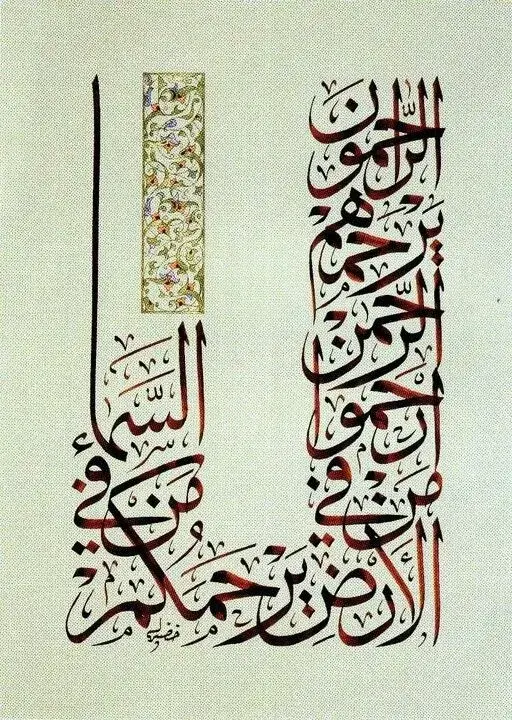 الرَّاحِمُونَ
يَرْحَمُهُمُ
الرَّحْمٰنُ
ارْحَمُوا
مَنْ فِي
الْأَرْضِ يَرْحَمْكُمْ
مَنْ فِي
السَّمَاءِ